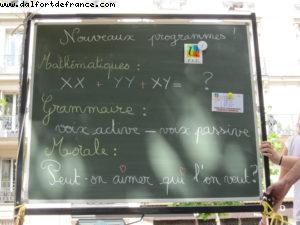 www.dalfortdefrance.com
Nouveaux programmes !
Mathématiques :
XX + YY + XY = ?
Grammaire :
voix active — voix passive
Morale :
Peut-on aimer qui l'on veut ?